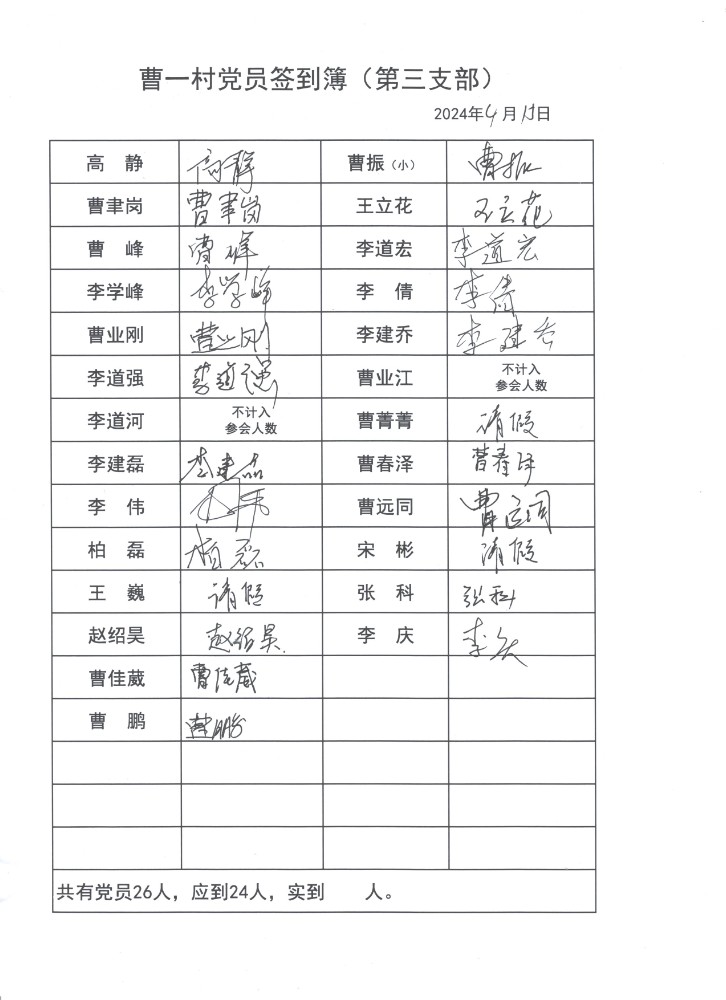 曹一村党员签到簿（第三支部）
2024年4月15日
高 静 高静 曹振（小） 曹振
曹聿岗 曹聿岗 王立花 王立花
曹 峰 曹峰 李道宏 李道宏
李学峰 李学峰 李 倩 李倩
曹业刚 曹业刚 李建乔 李建乔
李道强 李道强 曹业江 不计入
参会人数
李道河 不计入 曹菁菁 请假
参会人数
李建磊 李建磊 曹春泽 曹春泽
李 伟 李伟 曹远同 曹远同
柏 磊 柏磊 宋 彬 请假
王 巍 请假 张 科 张科
赵绍昊 赵绍昊 李 庆 李庆
曹佳葳 曹佳葳
曹 鹏 曹鹏
共有党员26人，应到24人，实到 人。